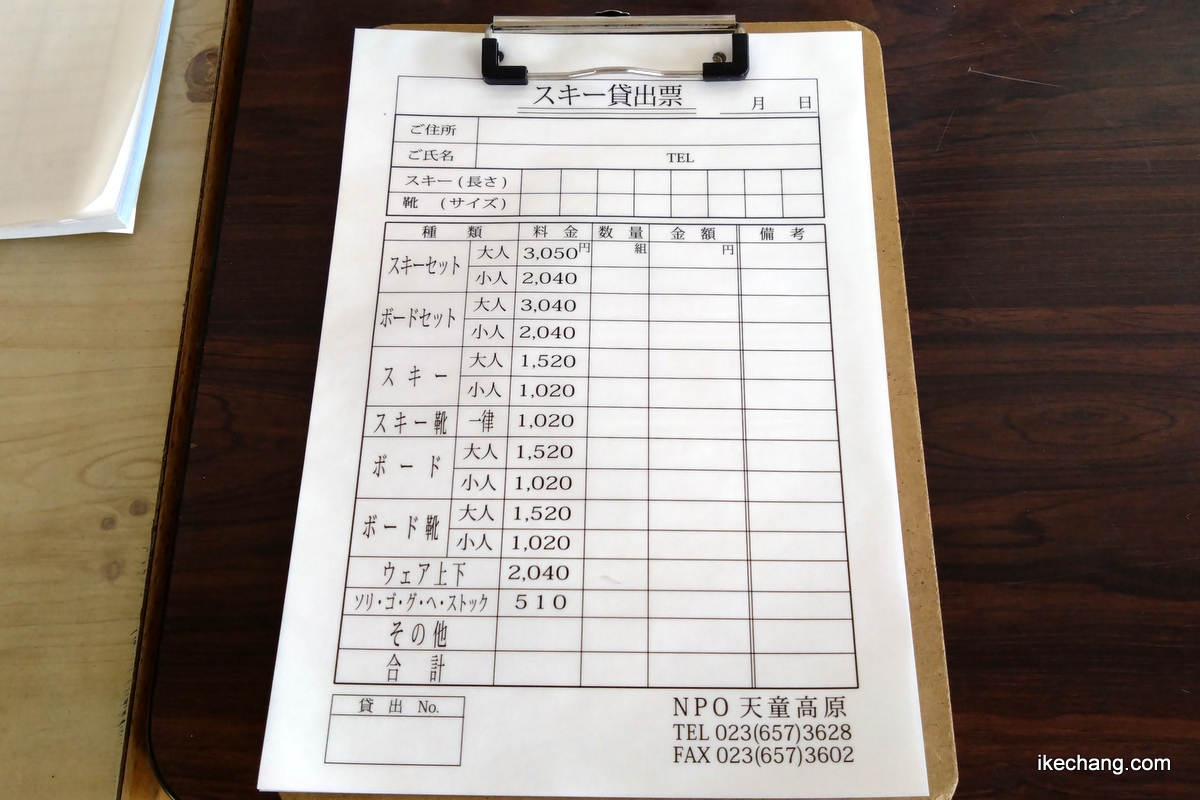 スキー貸出票 月 日
ご住所
ご氏名 TEL
スキー(長さ)
靴 (サイズ)
種 類 料 金 数 量 金 額 備 考
スキーセット 大人 3,050円 組 円
小人 2,040
ボードセット 大人 3,040
小人 2,040
スキー 大人 1,520
小人 1,020
スキー靴 一律 1,020
ボード 大人 1,520
小人 1,020
ボード靴 大人 1,520
小人 1,020
ウェア上下 2,040
ソリ・ゴ・グ・ヘ・ストック 510
その他
合 計
貸 出 No.
NPO 天童高原
TEL 023(657)3628
FAX 023(657)3602
ikechang.com